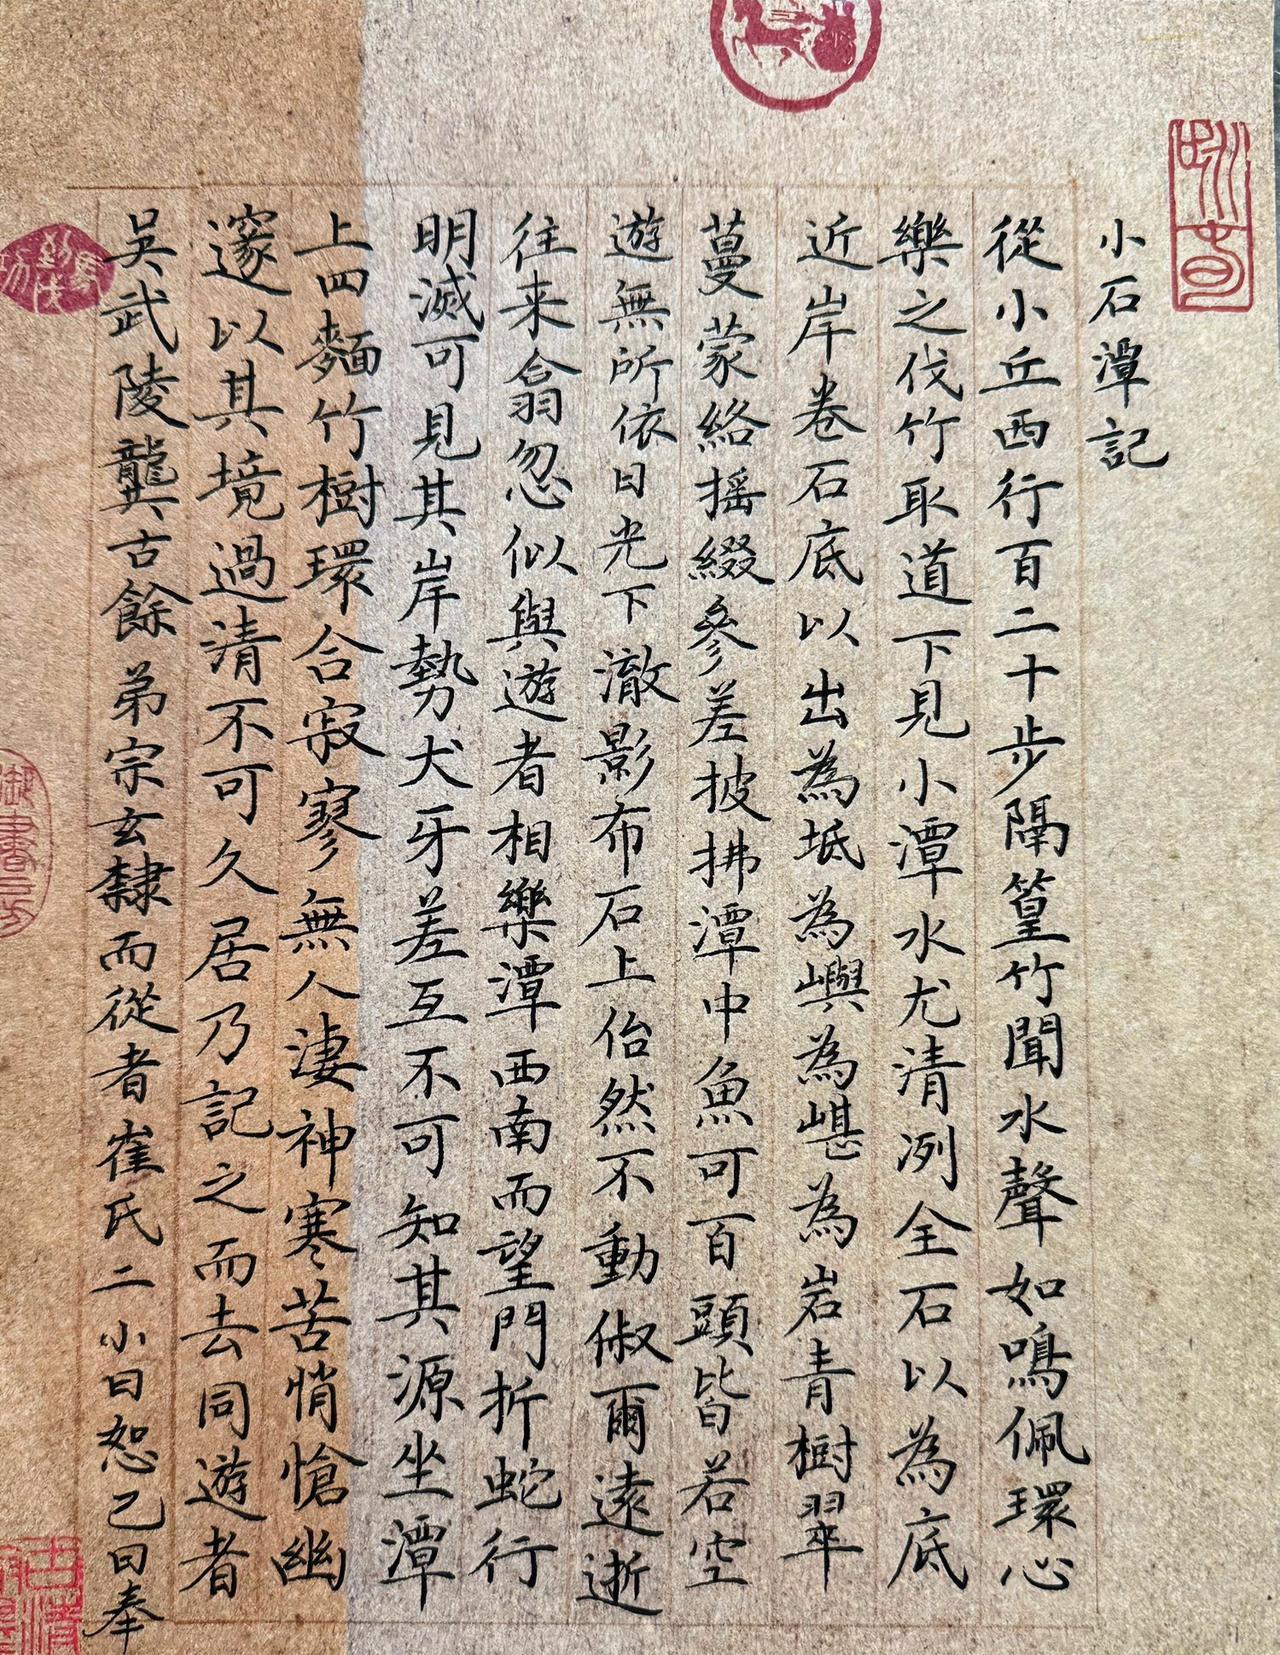 小石潭記
從小丘西行百二十步隔篁竹聞水聲如鳴佩環心
樂之伐竹取道下見小潭水尤清冽全石以為底
近岸卷石底以出為坻為嶼為嵁為岩青樹翠
蔓蒙絡摇綴參差披拂潭中魚可百頭皆若空
遊無所依日光下澈影布石上佁然不動俶爾遠逝
往来翕忽似與遊者相樂潭西南而望門折蛇行
明滅可見其岸勢犬牙差互不可知其源坐潭
上四麵竹樹環合寂寥無人淒神寒苦悄愴幽
邃以其境過清不可久居乃記之而去同遊者
吳武陵龔古餘弟宗玄隸而從者崔氏二小曰恕己曰奉